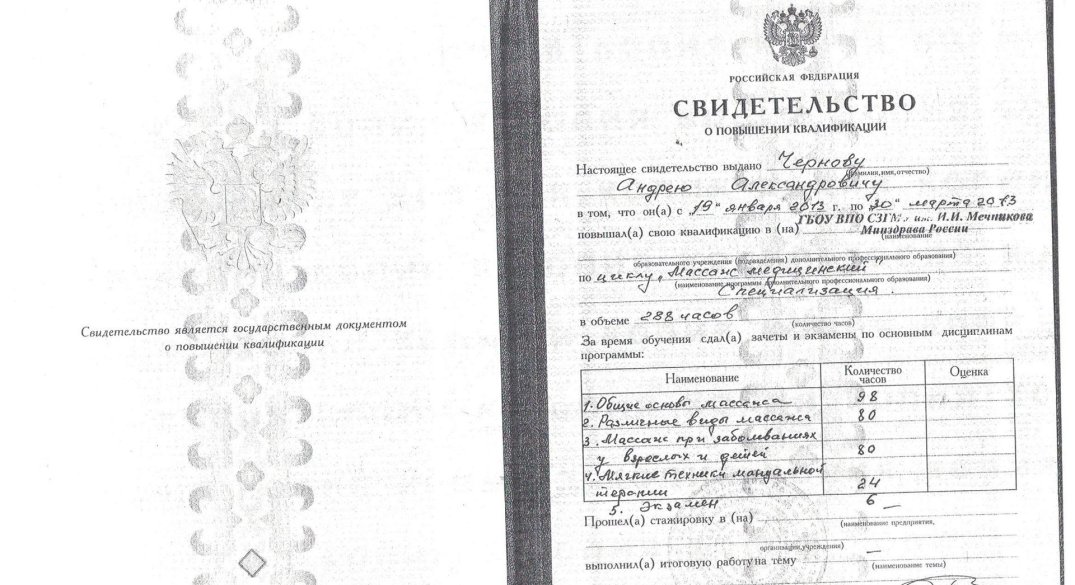 Свидетельство является государственным документом
о повышении квалификации
РОССИЙСКАЯ ФЕДЕРАЦИЯ
СВИДЕТЕЛЬСТВО
О ПОВЫШЕНИИ КВАЛИФИКАЦИИ
Настоящее свидетельство выдано Чернову
(фамилия, имя, отчество)
Андрею Александровичу
в том, что он(а) с „19“ января 2013 г. по „30“ марта 2013
ГБОУ ВПО СЗГМУ им. И.И. Мечникова
повышал(а) свою квалификацию в (на) Минздрава России
(наименование
образовательного учреждения (подразделения) дополнительного профессионального образования)
по циклу „Массаж медицинский“
(наименование программы дополнительного профессионального образования)
Специализация.
в объеме 288 часов
(количество часов)
За время обучения сдал(а) зачеты и экзамены по основным дисциплинам
программы:
Наименование Количество часов Оценка
1. Общие основы массажа 98
2. Различные виды массажа 80
3. Массаж при заболеваниях
у взрослых и детей 80
4. Мягкие техники мануальной
терапии 24
5. Экзамен 6
Прошел(а) стажировку в (на) —
(наименование предприятия,
организации, учреждения)
выполнил(а) итоговую работу на тему —
(наименование темы)